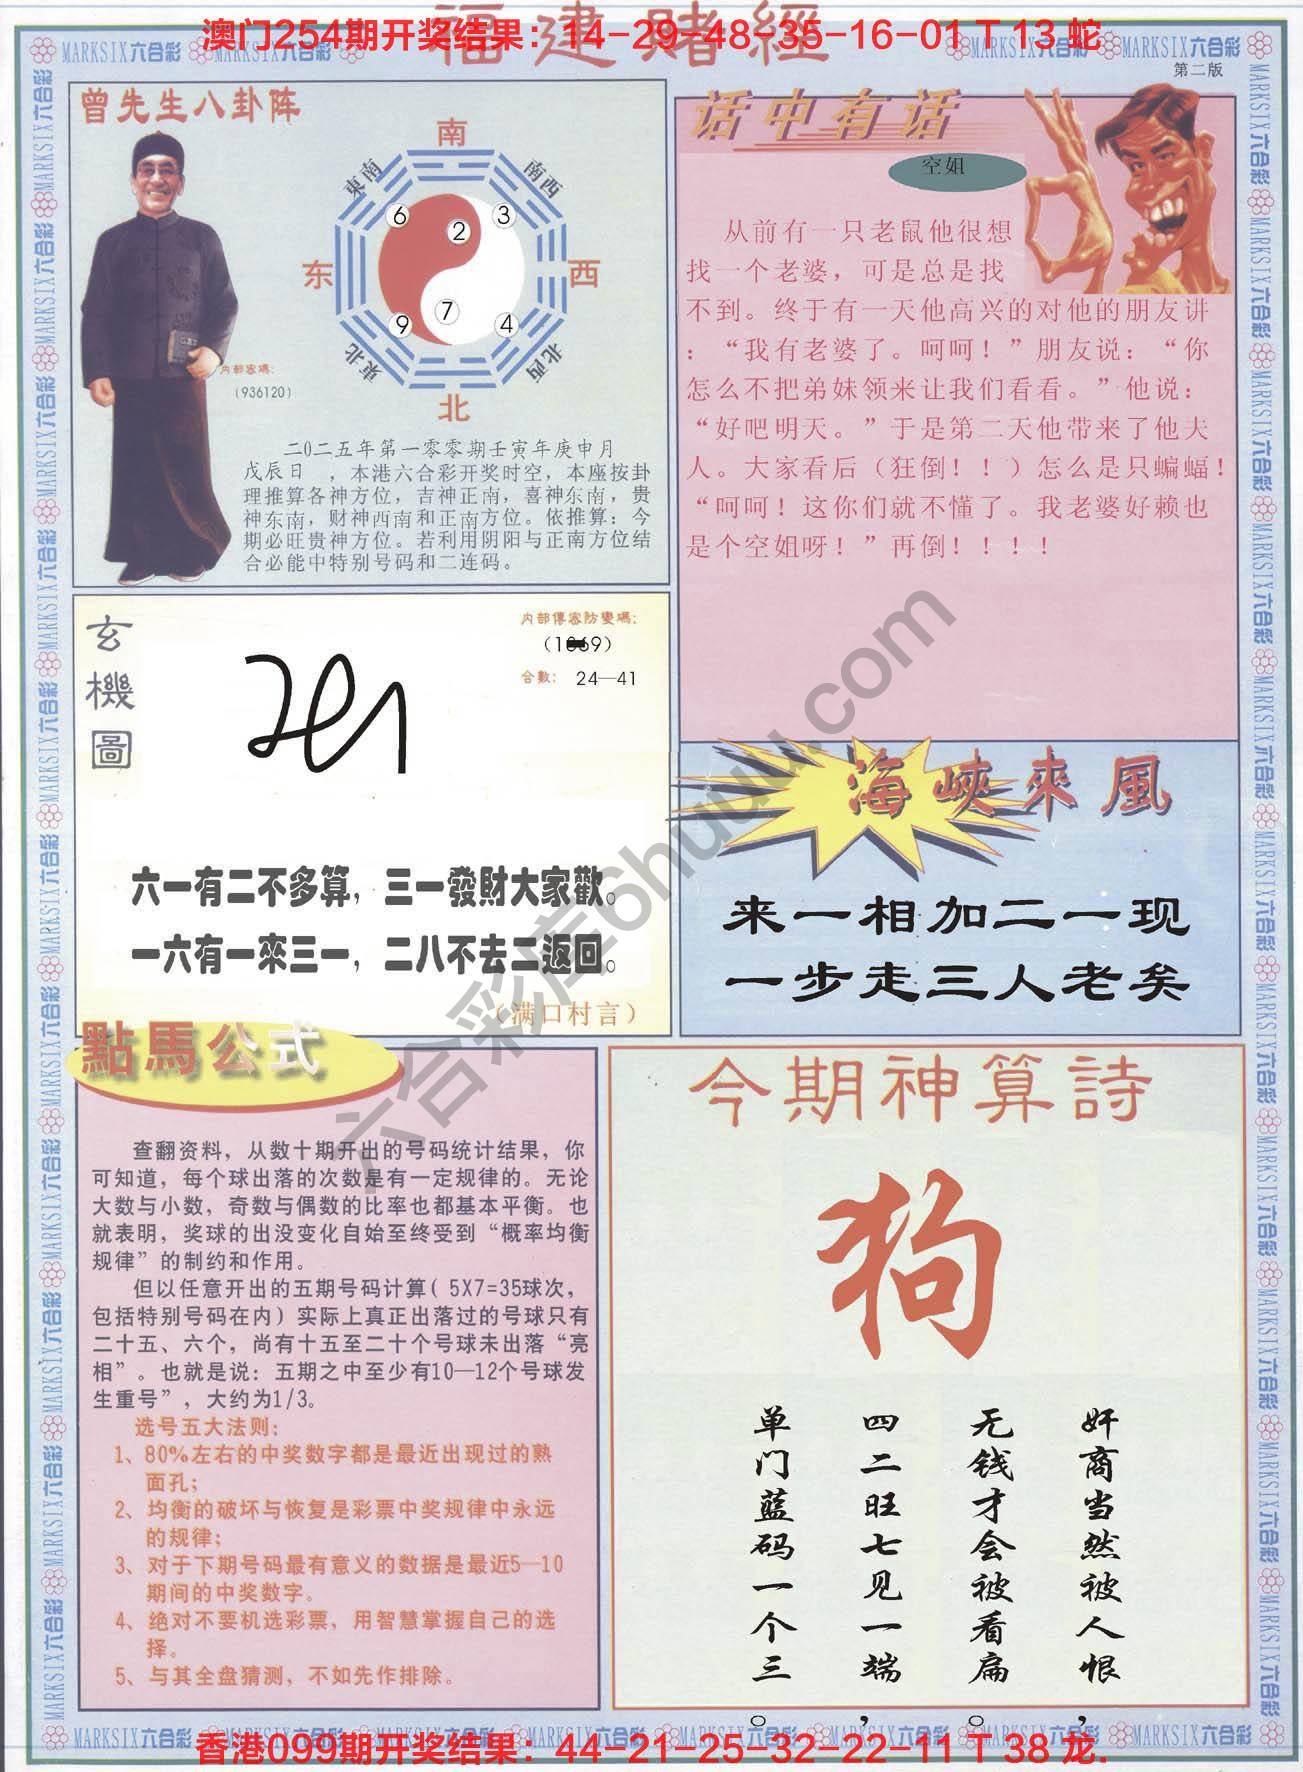 福建賭經
澳门254期开奖结果：14-29-48-35-16-01 T 13 蛇
MARKSIX六合彩
第二版
曾先生八卦阵
南
東南
南西
6
3
2
东
西
7
9
4
東北
北西
北
内部密碼：
（936120）
二0二五年第一零零期壬寅年庚申月
戊辰日 ，本港六合彩开奖时空，本座按卦
理推算各神方位，吉神正南，喜神东南，贵
神东南，财神西南和正南方位。依推算：今
期必旺贵神方位。若利用阴阳与正南方位结
合必能中特别号码和二连码。
话中有话
空姐
从前有一只老鼠他很想
找一个老婆，可是总是找
不到。终于有一天他高兴的对他的朋友讲
：“我有老婆了。呵呵！”朋友说：“你
怎么不把弟妹领来让我们看看。”他说：
“好吧明天。”于是第二天他带来了他夫
人。大家看后（狂倒！！）怎么是只蝙蝠！
“呵呵！这你们就不懂了。我老婆好赖也
是个空姐呀！”再倒！！！！
玄機圖
内部傳密防變碼：
合數： 24—41
六一有二不多算，三一發財大家歡。
一六有一來三一，二八不去二返回。
（满口村言）
海峽來風
来一相加二一现
一步走三人老矣
點馬公式
查翻资料，从数十期开出的号码统计结果，你
可知道，每个球出落的次数是有一定规律的。无论
大数与小数，奇数与偶数的比率也都基本平衡。也
就表明，奖球的出没变化自始至终受到“概率均衡
规律”的制约和作用。
但以任意开出的五期号码计算（5X7=35球次，
包括特别号码在内）实际上真正出落过的号球只有
二十五、六个，尚有十五至二十个号球未出落“亮
相”。也就是说：五期之中至少有10—12个号球发
生重号”，大约为1/3。
选号五大法则：
1、80%左右的中奖数字都是最近出现过的熟
面孔；
2、均衡的破坏与恢复是彩票中奖规律中永远
的规律；
3、对于下期号码最有意义的数据是最近5—10
期间的中奖数字。
4、绝对不要机选彩票，用智慧掌握自己的选
择。
5、与其全盘猜测，不如先作排除。
今期神算詩
狗
奸商当然被人恨，
无钱才会被看扁。
四二旺七见一端，
单门蓝码一个三。
六合彩库6huuu.com
香港099期开奖结果：44-21-25-32-22-11 T 38 龙.